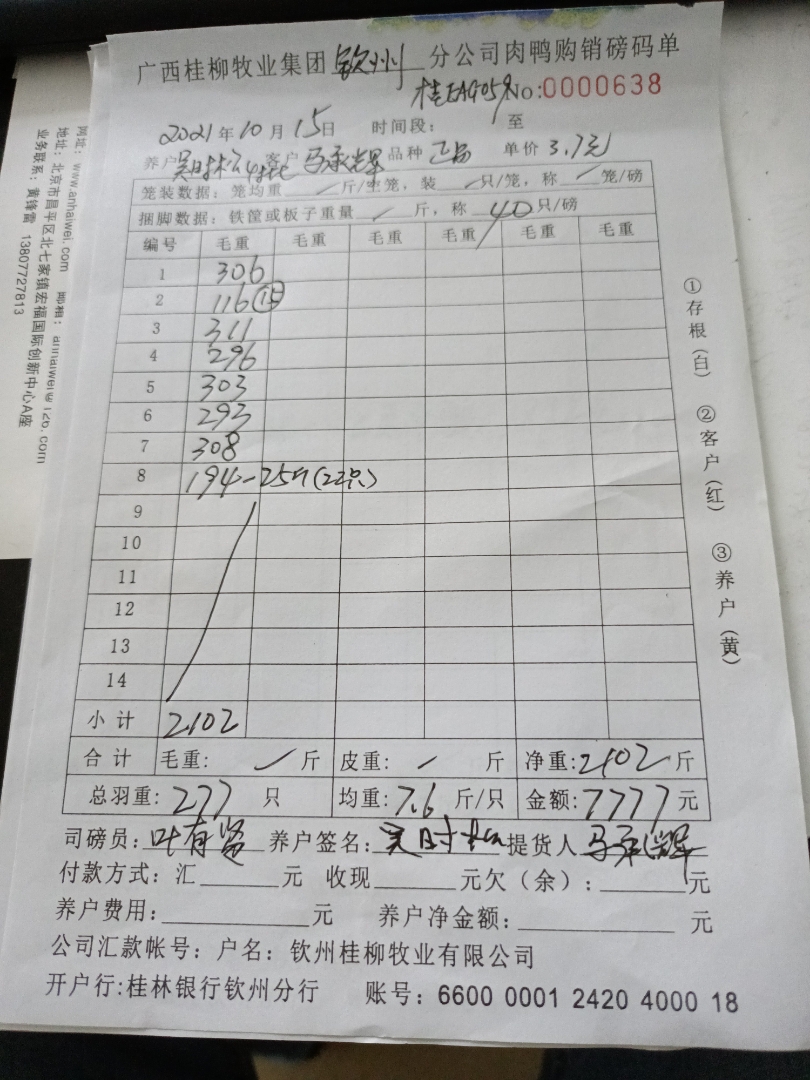 广西桂柳牧业集团钦州分公司肉鸭购销磅码单
桂EAG059 No:0000638
2021年10月15日 时间段: 至
养户吴时松 客户马承辉 品种正品 单价3.7元
笼装数据: 笼均重 / 斤/空笼, 装 / 只/笼, 称 / 笼/磅
捆脚数据: 铁筐或板子重量 / 斤, 称 40只/磅
编号 毛重 毛重 毛重 毛重 毛重 毛重
1 306
2 116 (15)
3 311
4 296
5 303
6 293
7 308
8 194-25斤(22只)
9
10
11
12
13
14
小计 2102
合计 毛重: / 斤 皮重: / 斤 净重:2102斤
总羽重: 277 只 均重: 7.6 斤/只 金额: 7777元
司磅员: 叶有贤 养户签名: 吴时松 提货人 马承辉
付款方式: 汇 元 收现 元欠(余): 元
养户费用: 元 养户净金额: 元
公司汇款帐号: 户名: 钦州桂柳牧业有限公司
开户行:桂林银行钦州分行 账号: 6600 0001 2420 4000 18
①存根(白) ②客户(红) ③养户(黄)
网址: www.anhaiwei.com 邮箱: anhaiwei@126.com
地址: 北京市昌平区北七家镇宏福国际创新中心A座
业务联系: 黄锋雷 13807727813